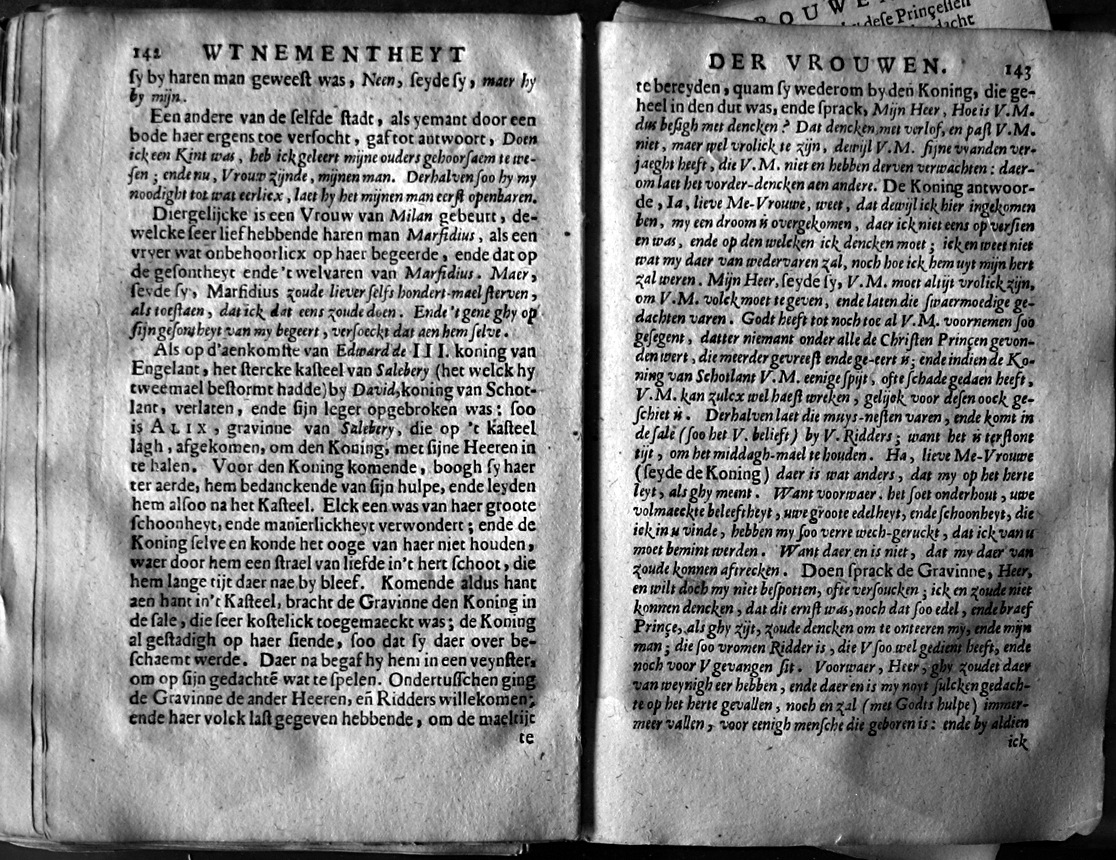 142 WTNEMENTHEYT
ſy by haren man geweeſt was, Neen, ſeyde ſy, maer hy
by mijn.
Een andere van de ſelfde ſtadt, als yemant door een
bode haer ergens toe verſocht, gaf tot antwoort, Doen
ick een Kint was, heb ick geleert mijne ouders gehoorſaem te we-
ſen; ende nu, Vrouw zijnde, mijnen man. Derhalven ſoo hy my
noodight tot wat eerlicx, laet hy het mijnen man eerſt openbaren.
Diergelijcke is een Vrouw van Milan gebeurt, de-
welcke ſeer lief hebbende haren man Marfidius, als een
vryer wat onbehoorlicx op haer begeerde, ende dat op
de geſontheyt ende 't welvaren van Marfidius. Maer,
ſeyde ſy, Marfidius zoude liever ſelfs hondert-mael ſterven,
als toeſtaen, dat ick dat eens zoude doen. Ende 't gene ghy op
ſijn geſontheyt van my begeert, verſoeckt dat aen hem ſelve.
Als op d'aenkomſte van Edward de III. koning van
Engelant, het ſtercke kaſteel van Salebery (het welck hy
tweemael beſtormt hadde) by David, koning van Schot-
lant, verlaten, ende ſijn leger opgebroken was; ſoo
is ALIX, gravinne van Salebery, die op 't kaſteel
lagh, afgekomen, om den Koning, met ſijne Heeren in
te halen. Voor den Koning komende, boogh ſy haer
ter aerde, hem bedanckende van ſijn hulpe, ende leyden
hem alſoo na het Kaſteel. Elck een was van haer groote
ſchoonheyt, ende manierlickheyt verwondert; ende de
Koning ſelve en konde het ooge van haer niet houden,
waer door hem een ſtrael van liefde in't hert ſchoot, die
hem lange tijt daer nae by bleef. Komende aldus hant
aen hant in't Kaſteel, bracht de Gravinne den Koning in
de ſale, die ſeer koſtelick toegemaeckt was; de Koning
al geſtadigh op haer ſiende, ſoo dat ſy daer over be-
ſchaemt werde. Daer na begaf hy hem in een veynſter,
om op ſijn gedachtē wat te ſpelen. Ondertuſſchen ging
de Gravinne de ander Heeren, en̄ Ridders willekomen;
ende haer volck laſt gegeven hebbende, om de maeltijt
te
ROUWE
deſe Prinçeſſen
dacht
DER VROUWEN. 143
te bereyden, quam ſy wederom by den Koning, die ge-
heel in den dut was, ende ſprack, Mijn Heer, Hoe is V.M.
dus beſigh met dencken? Dat dencken, met verlof, en paſt V.M.
niet, maer wel vrolick te zijn, dewijl V.M. ſijne vyanden ver-
jaeght heeft, die V.M. niet en hebben derven verwachten: daer-
om laet het vorder-dencken aen andere. De Koning antwoor-
de, Ia, lieve Me-Vrouwe, weet, dat dewijl ick hier ingekomen
ben, my een droom is overgekomen, daer ick niet eens op verſien
en was, ende op den welcken ick dencken moet; ick en weet niet
wat my daer van wedervaren zal, noch hoe ick hem uyt mijn hert
zal weren. Mijn Heer, ſeyde ſy, V.M. moet altijt vrolick zijn,
om V.M. volck moet te geven, ende laten die ſwaermoedige ge-
dachten varen. Godt heeft tot noch toe al V.M. voornemen ſoo
geſegent, datter niemant onder alle de Chriſten Prinçen gevon-
den wert, die meerder gevreeſt ende ge-eert is; ende indien de Ko-
ning van Schotlant V.M. eenige ſpijt, ofte ſchade gedaen heeft,
V.M. kan zulcx wel haeſt wreken, gelijck voor deſen oock ge-
ſchiet is. Derhalven laet die muys-neſten varen, ende komt in
de ſale (ſoo het V. belieft) by V. Ridders; want het is terſtont
tijt, om het middagh-mael te houden. Ha, lieve Me-Vrouwe
(ſeyde de Koning) daer is wat anders, dat my op het herte
leyt, als ghy meent. Want voorwaer, het ſoet onderhout, uwe
volmaeckte beleeftheyt, uwe groote edelheyt, ende ſchoonheyt, die
ick in u vinde, hebben my ſoo verre wech-geruckt, dat ick van u
moet bemint werden. Want daer en is niet, dat my daer van
zoude konnen aftrecken. Doen ſprack de Gravinne, Heer,
en wilt doch my niet beſpotten, ofte verſoucken; ick en zoude niet
konnen dencken, dat dit ernſt was, noch dat ſoo edel, ende braef
Prinçe, als ghy zijt, zoude dencken om te onteeren my, ende mijn
man; die ſoo vromen Ridder is, die V ſoo wel gedient heeft, ende
noch voor V gevangen ſit. Voorwaer, Heer, ghy zoudet daer
van weynigh eer hebben, ende daer en is my noyt ſulcken gedach-
te op het herte gevallen, noch en zal (met Godts hulpe) immer-
meer vallen, voor eenigh menſche die geboren is: ende by aldien
ick